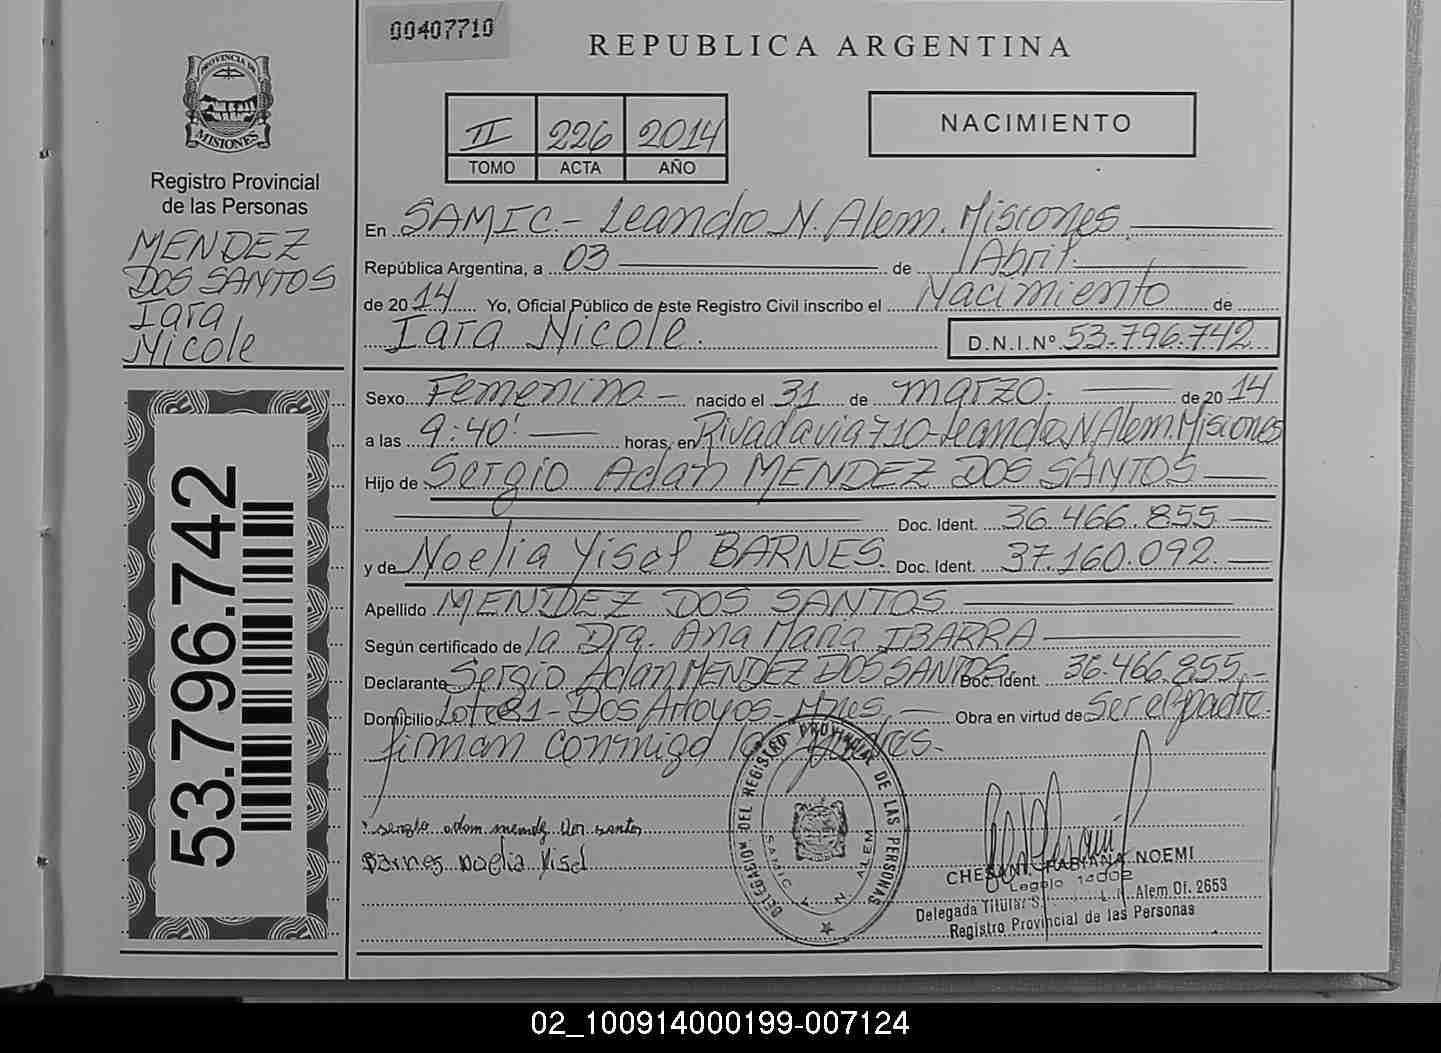 00407710
REPUBLICA ARGENTINA
PROVINCIA DE
MISIONES
Registro Provincial
de las Personas
MENDEZ
DOS SANTOS
Iara
Nicole
53.796.742
II 226 2014
TOMO ACTA AÑO
NACIMIENTO
En SAMIC - Leandro N. Alem. Misiones
República Argentina, a 03 de Abril.
de 2014 Yo, Oficial Público de este Registro Civil inscribo el Nacimiento de
Iara Nicole. D.N.I.Nº 53.796.742
Sexo Femenino - nacido el 31 de marzo. de 2014
a las 9:40' horas, en Rivadavia 710-Leandro N Alem. Misiones
Hijo de Sergio Adan MENDEZ DOS SANTOS
Doc. Ident. 36.466.855
y de Noelia Yisel BARNES. Doc. Ident. 37.160.092.
Apellido MENDEZ DOS SANTOS
Según certificado de la Dra. Ana Maria IBARRA
Declarante Sergio Adan MENDEZ DOS SANTOS Doc. Ident. 36.466.855.-
Domicilio Lote 81 - Dos Arroyos - Mnes. - Obra en virtud de ser el padre.
firman conmigo los padres.
sergio adan mendez dos santos
Barnes noelia Yisel
DELEGACION DEL REGISTRO PROVINCIAL DE LAS PERSONAS
SAMIC N ALEM
CHESANI, FABIANA NOEMI
Legajo 14002
Delegada Titular S. L. N. Alem Of. 2653
Registro Provincial de las Personas
02_100914000199-007124